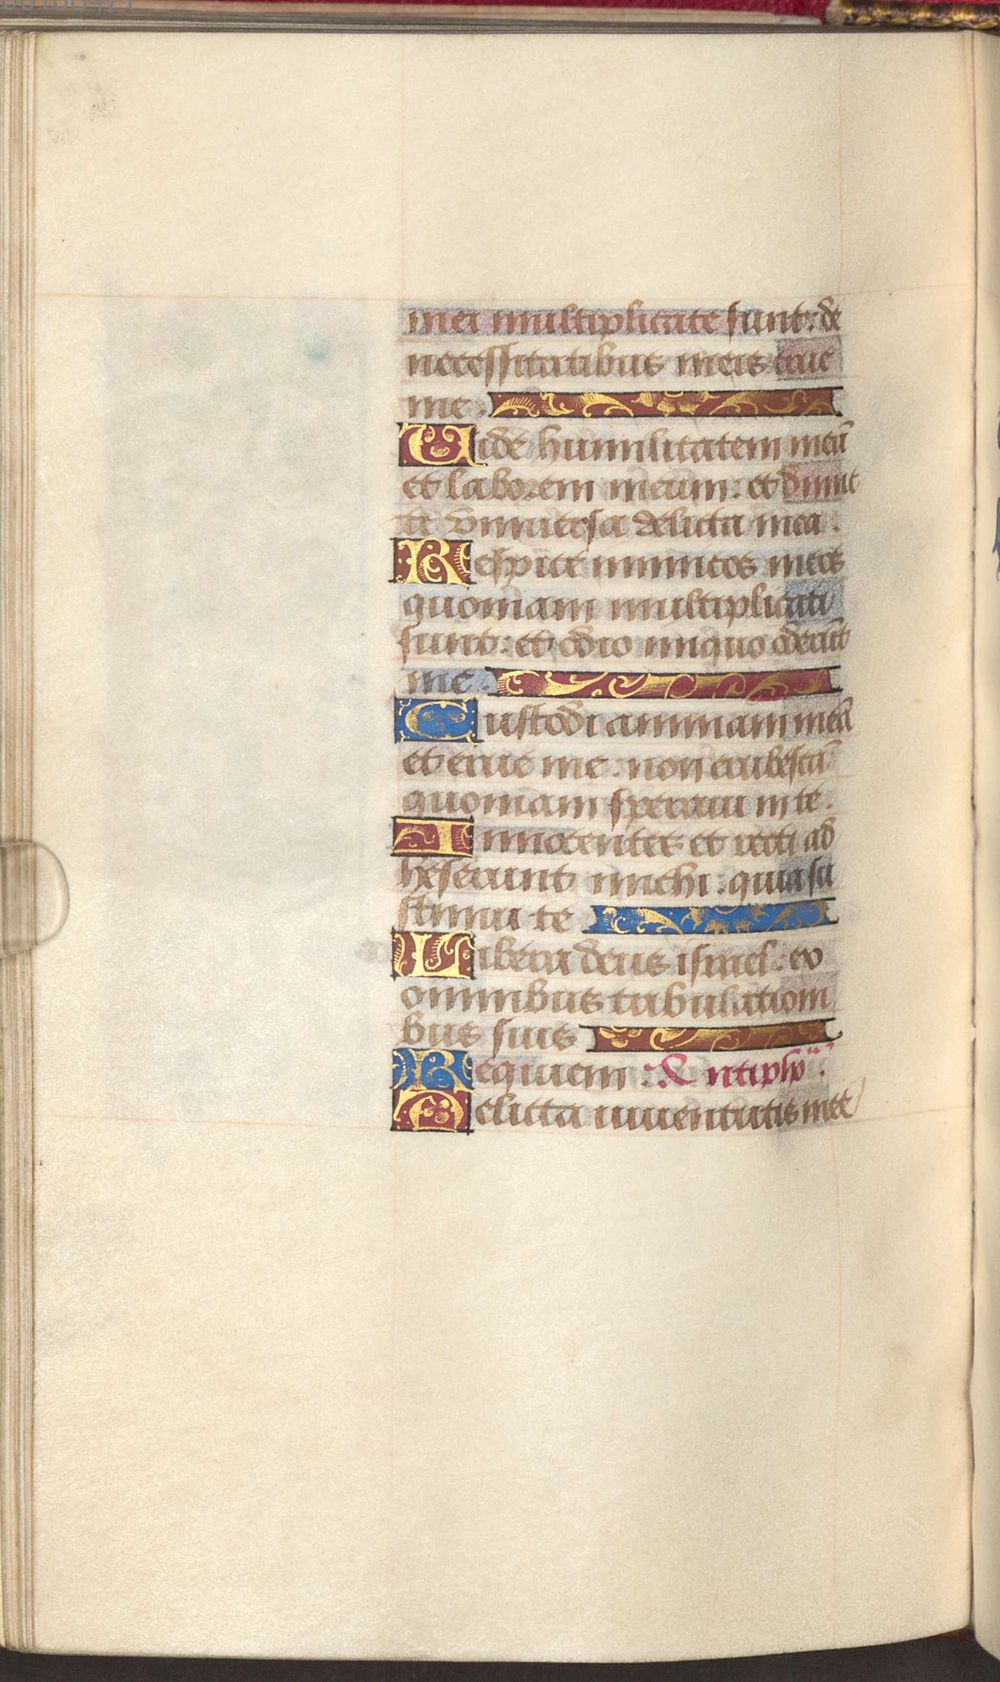 mei multiplicate sunt: de
necessitatibus meis erue
me.
Uide humilitatem meā
et laborem meum: et dimit
te vniuersa delicta mea.
Respice inimicos meos
quoniam multiplicati
sunt: et odio iniquo oderūt
me.
Custodi animam meā
et erue me. non erubescā
quoniam speraui in te.
Innocentes et recti ad
heserunt michi. quia su
stinui te
Libera deus israel. ex
omnibus tribulationi
bus suis
Requiem. Antipho
Delicta iuuentutis mee